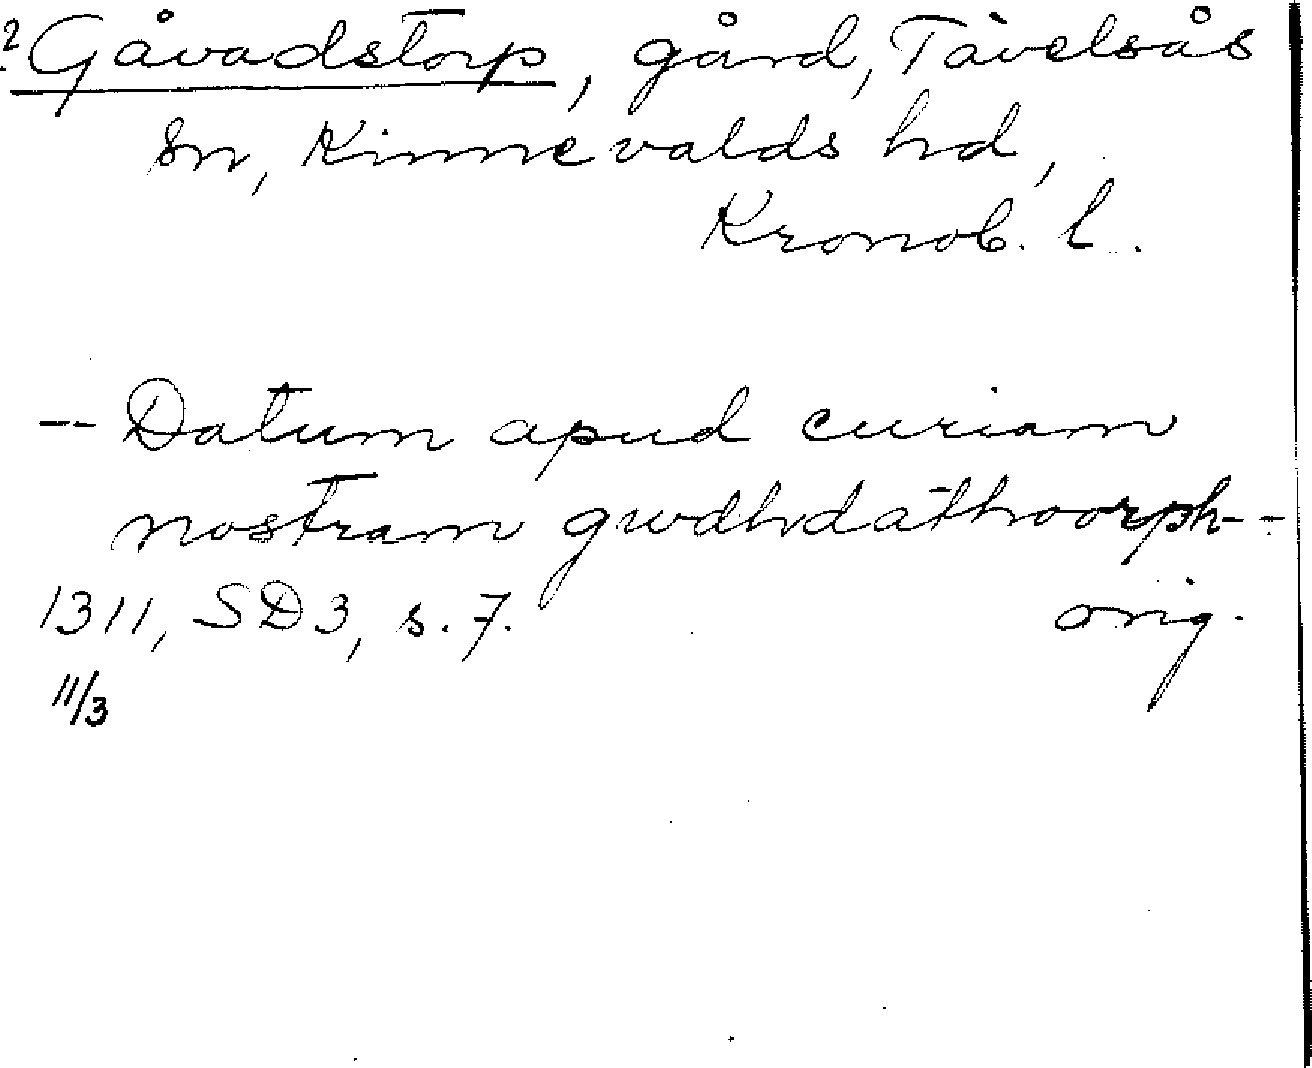 ? Gåvadstorp, gård, Tävelsås
sn, Kinnevalds hd,
Kronob. l.
-- Datum apud curiam
nostram gwdhdathoorph--
1311, SD3, s. 7. orig.
11/3